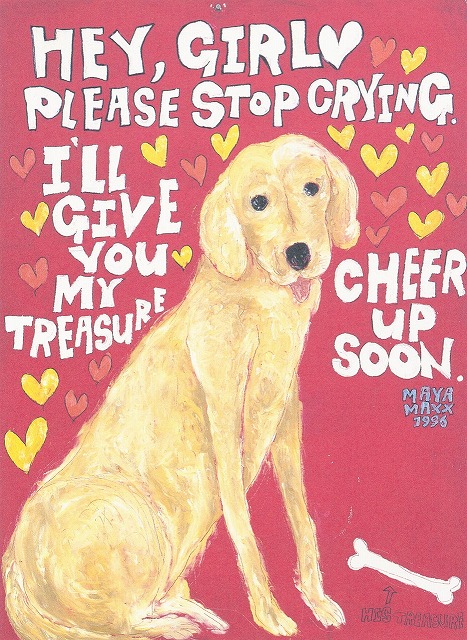 HEY, GIRL♥
PLEASE STOP CRYING.
I'LL
GIVE
YOU
MY
TREASURE
CHEER
UP
SOON.
MAYA
MAXX
1996
↑
HES TREASURE